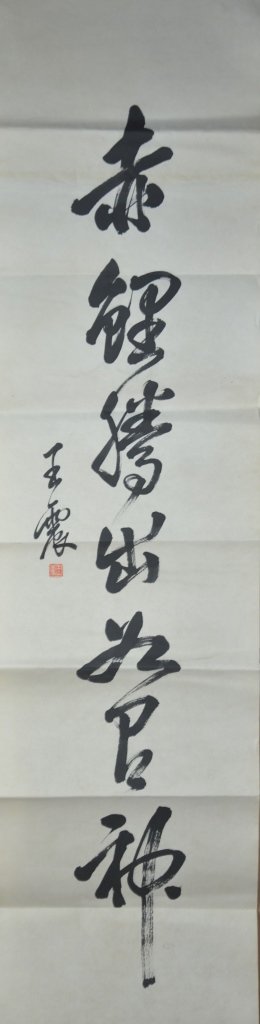 赤鯉騰出如有神
王震